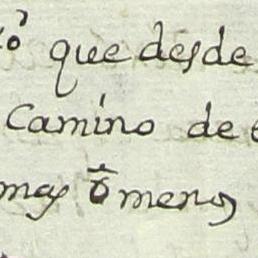 que desde
Camino de
mas ō menos